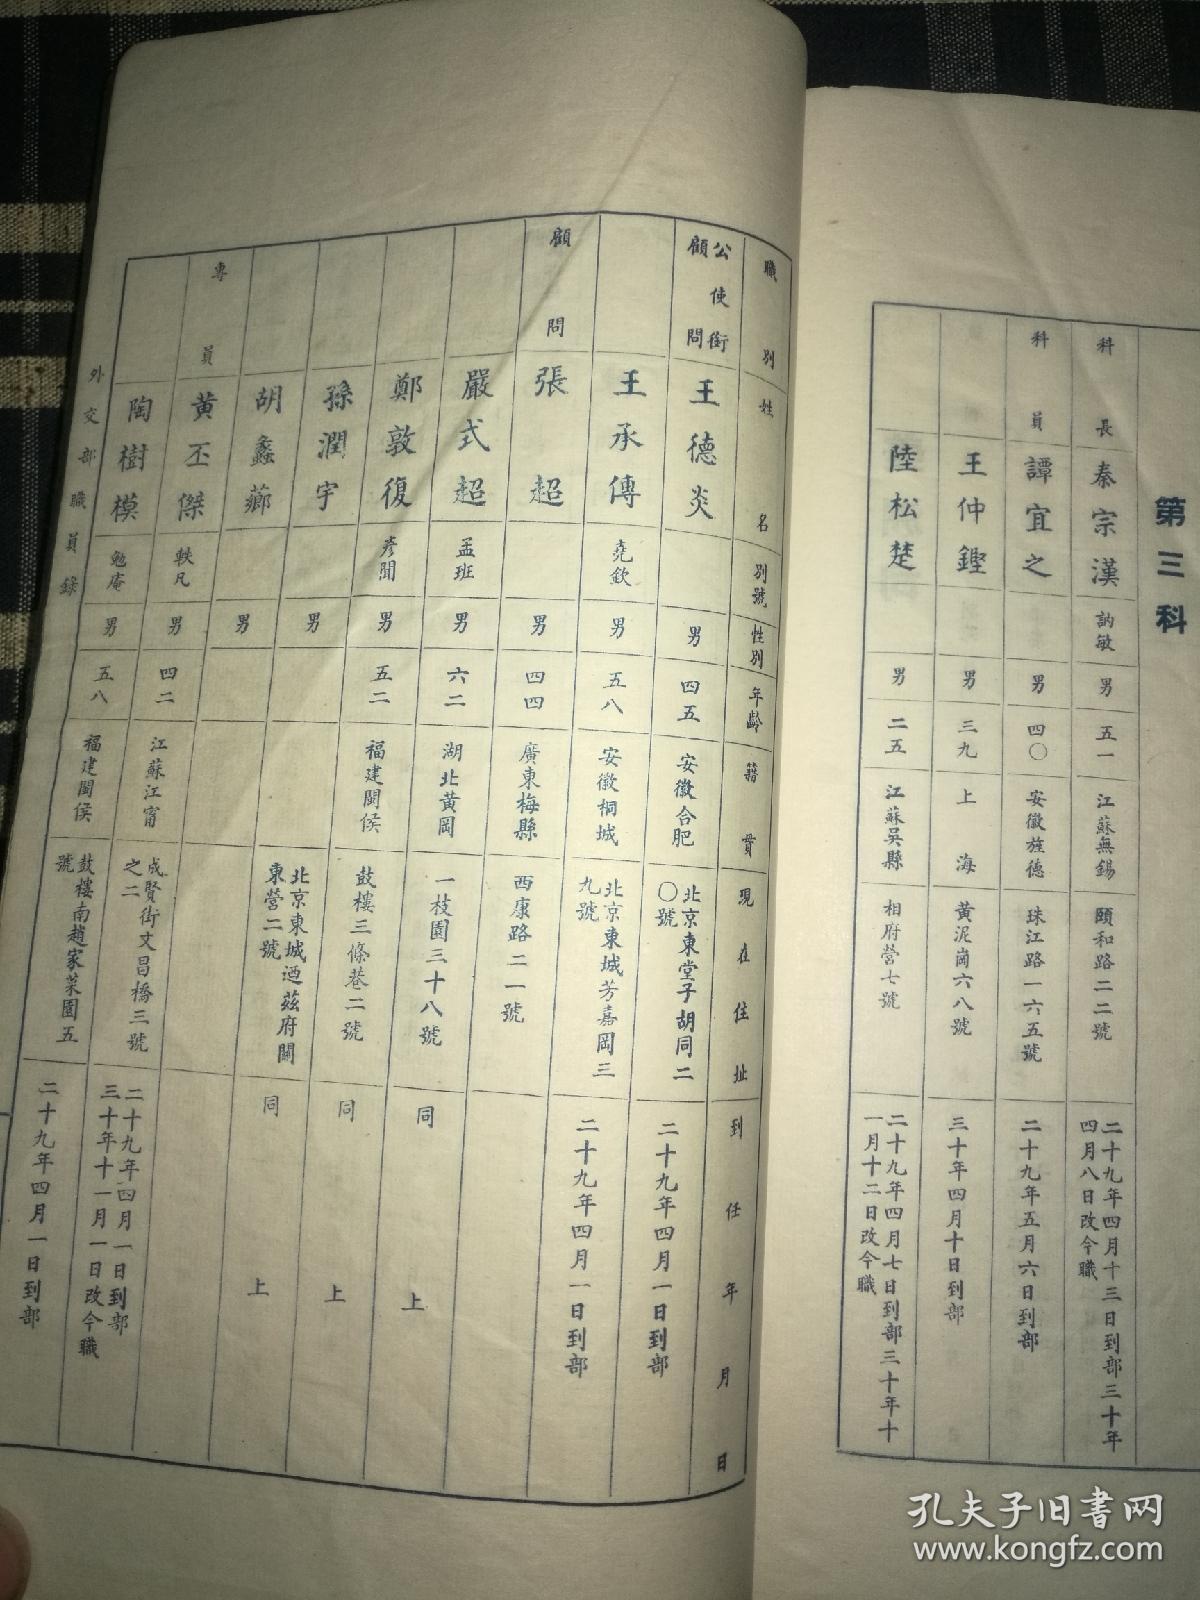 第三科
科長 秦宗漢 訥敏 男 五一 江蘇無錫 頤和路二二號 二十九年四月十三日到部三十年四月八日改今職
科員 譚宜之 男 四〇 安徽旌德 珠江路一六五號 二十九年五月六日到部
王仲鏗 男 三九 上海 黃泥崗六八號 三十年四月十日到部
陸松楚 男 二五 江蘇吳縣 相府營七號 二十九年四月七日到部三十年十一月十二日改今職
職別 姓名 別號 性別 年齡 籍貫 現在住址 到任年月日
公使銜顧問 王德炎 男 四五 安徽合肥 北京東堂子胡同二〇號 二十九年四月一日到部
王承傳 堯欽 男 五八 安徽桐城 北京東城芳嘉岡三九號 二十九年四月一日到部
顧問 張超 男 四四 廣東梅縣 西康路二一號
嚴式超 孟班 男 六二 湖北黃岡 一枝園三十八號 同上
鄭敦復 彥聞 男 五二 福建閩侯 鼓樓三條巷二號 同上
孫潤宇 男 北京東城迺茲府關東營二號 同上
胡蠡薌 男
專員 黃丕傑 軼凡 男 四二 江蘇江甯 成賢街文昌橋三號之二 二十九年四月一日到部三十年十一月一日改今職
陶樹模 勉庵 男 五八 福建閩侯 鼓樓南趙家菜園五號 二十九年四月一日到部
外交部職員錄
孔夫子旧书网
www.kongfz.com